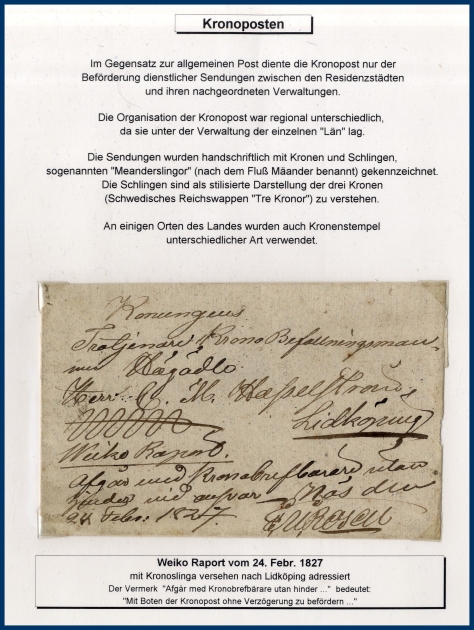 Kronoposten
Im Gegensatz zur allgemeinen Post diente die Kronopost nur der
Beförderung dienstlicher Sendungen zwischen den Residenzstädten
und ihren nachgeordneten Verwaltungen.
Die Organisation der Kronopost war regional unterschiedlich,
da sie unter der Verwaltung der einzelnen "Län" lag.
Die Sendungen wurden handschriftlich mit Kronen und Schlingen,
sogenannten "Meanderslingor" (nach dem Fluß Mäander benannt) gekennzeichnet.
Die Schlingen sind als stilisierte Darstellung der drei Kronen
(Schwedisches Reichswappen "Tre Kronor") zu verstehen.
An einigen Orten des Landes wurden auch Kronenstempel
unterschiedlicher Art verwendet.
Konungens
Krono Befallningsman
Herr M.
Lidköping
Weiko Raport.
afgår med Kronobrefbärare utan
hinder
24 Febr: 1827.
Weiko Raport vom 24. Febr. 1827
mit Kronoslinga versehen nach Lidköping adressiert
Der Vermerk "Afgår med Kronobrefbärare utan hinder ..." bedeutet:
"Mit Boten der Kronopost ohne Verzögerung zu befördern ..."